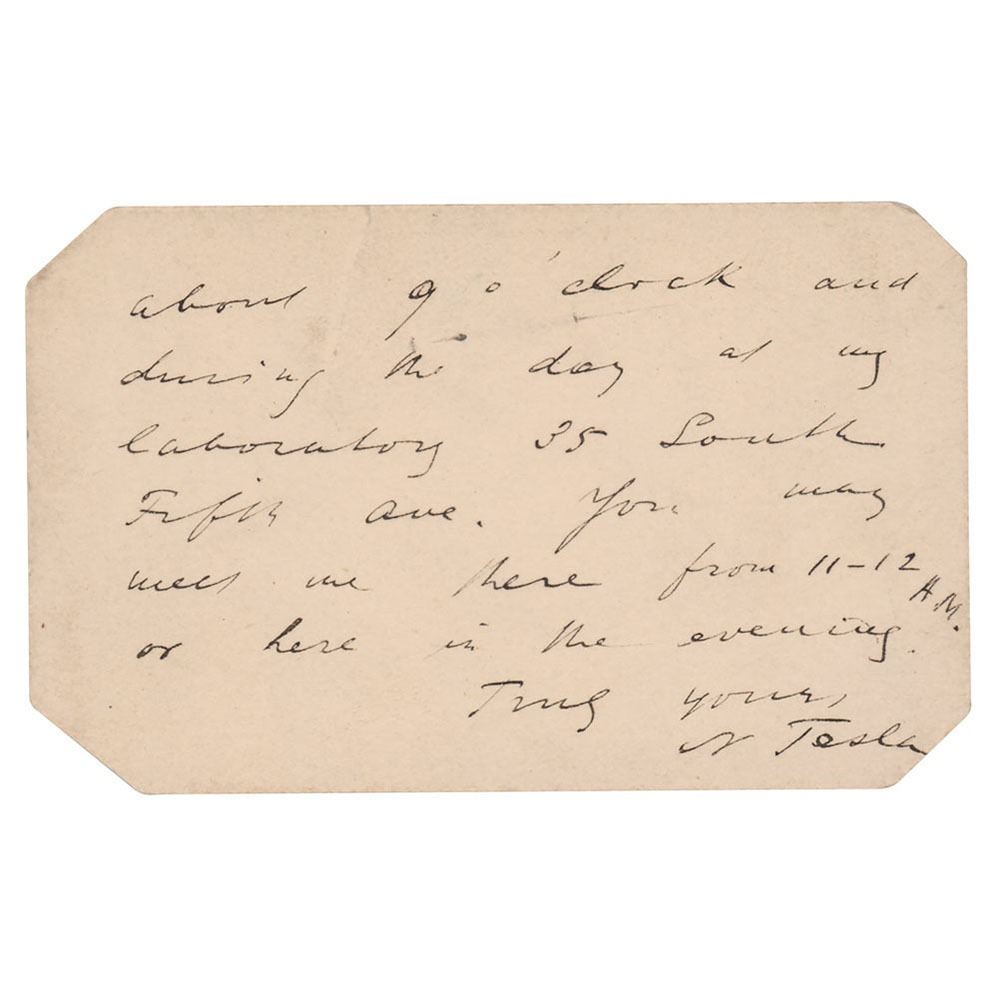 about 9 o'clock and
during the day at my
laboratory 35 South
Fifth Ave. You may
meet me there from 11-12
A.M.
or here in the evening.
Truly yours,
N Tesla